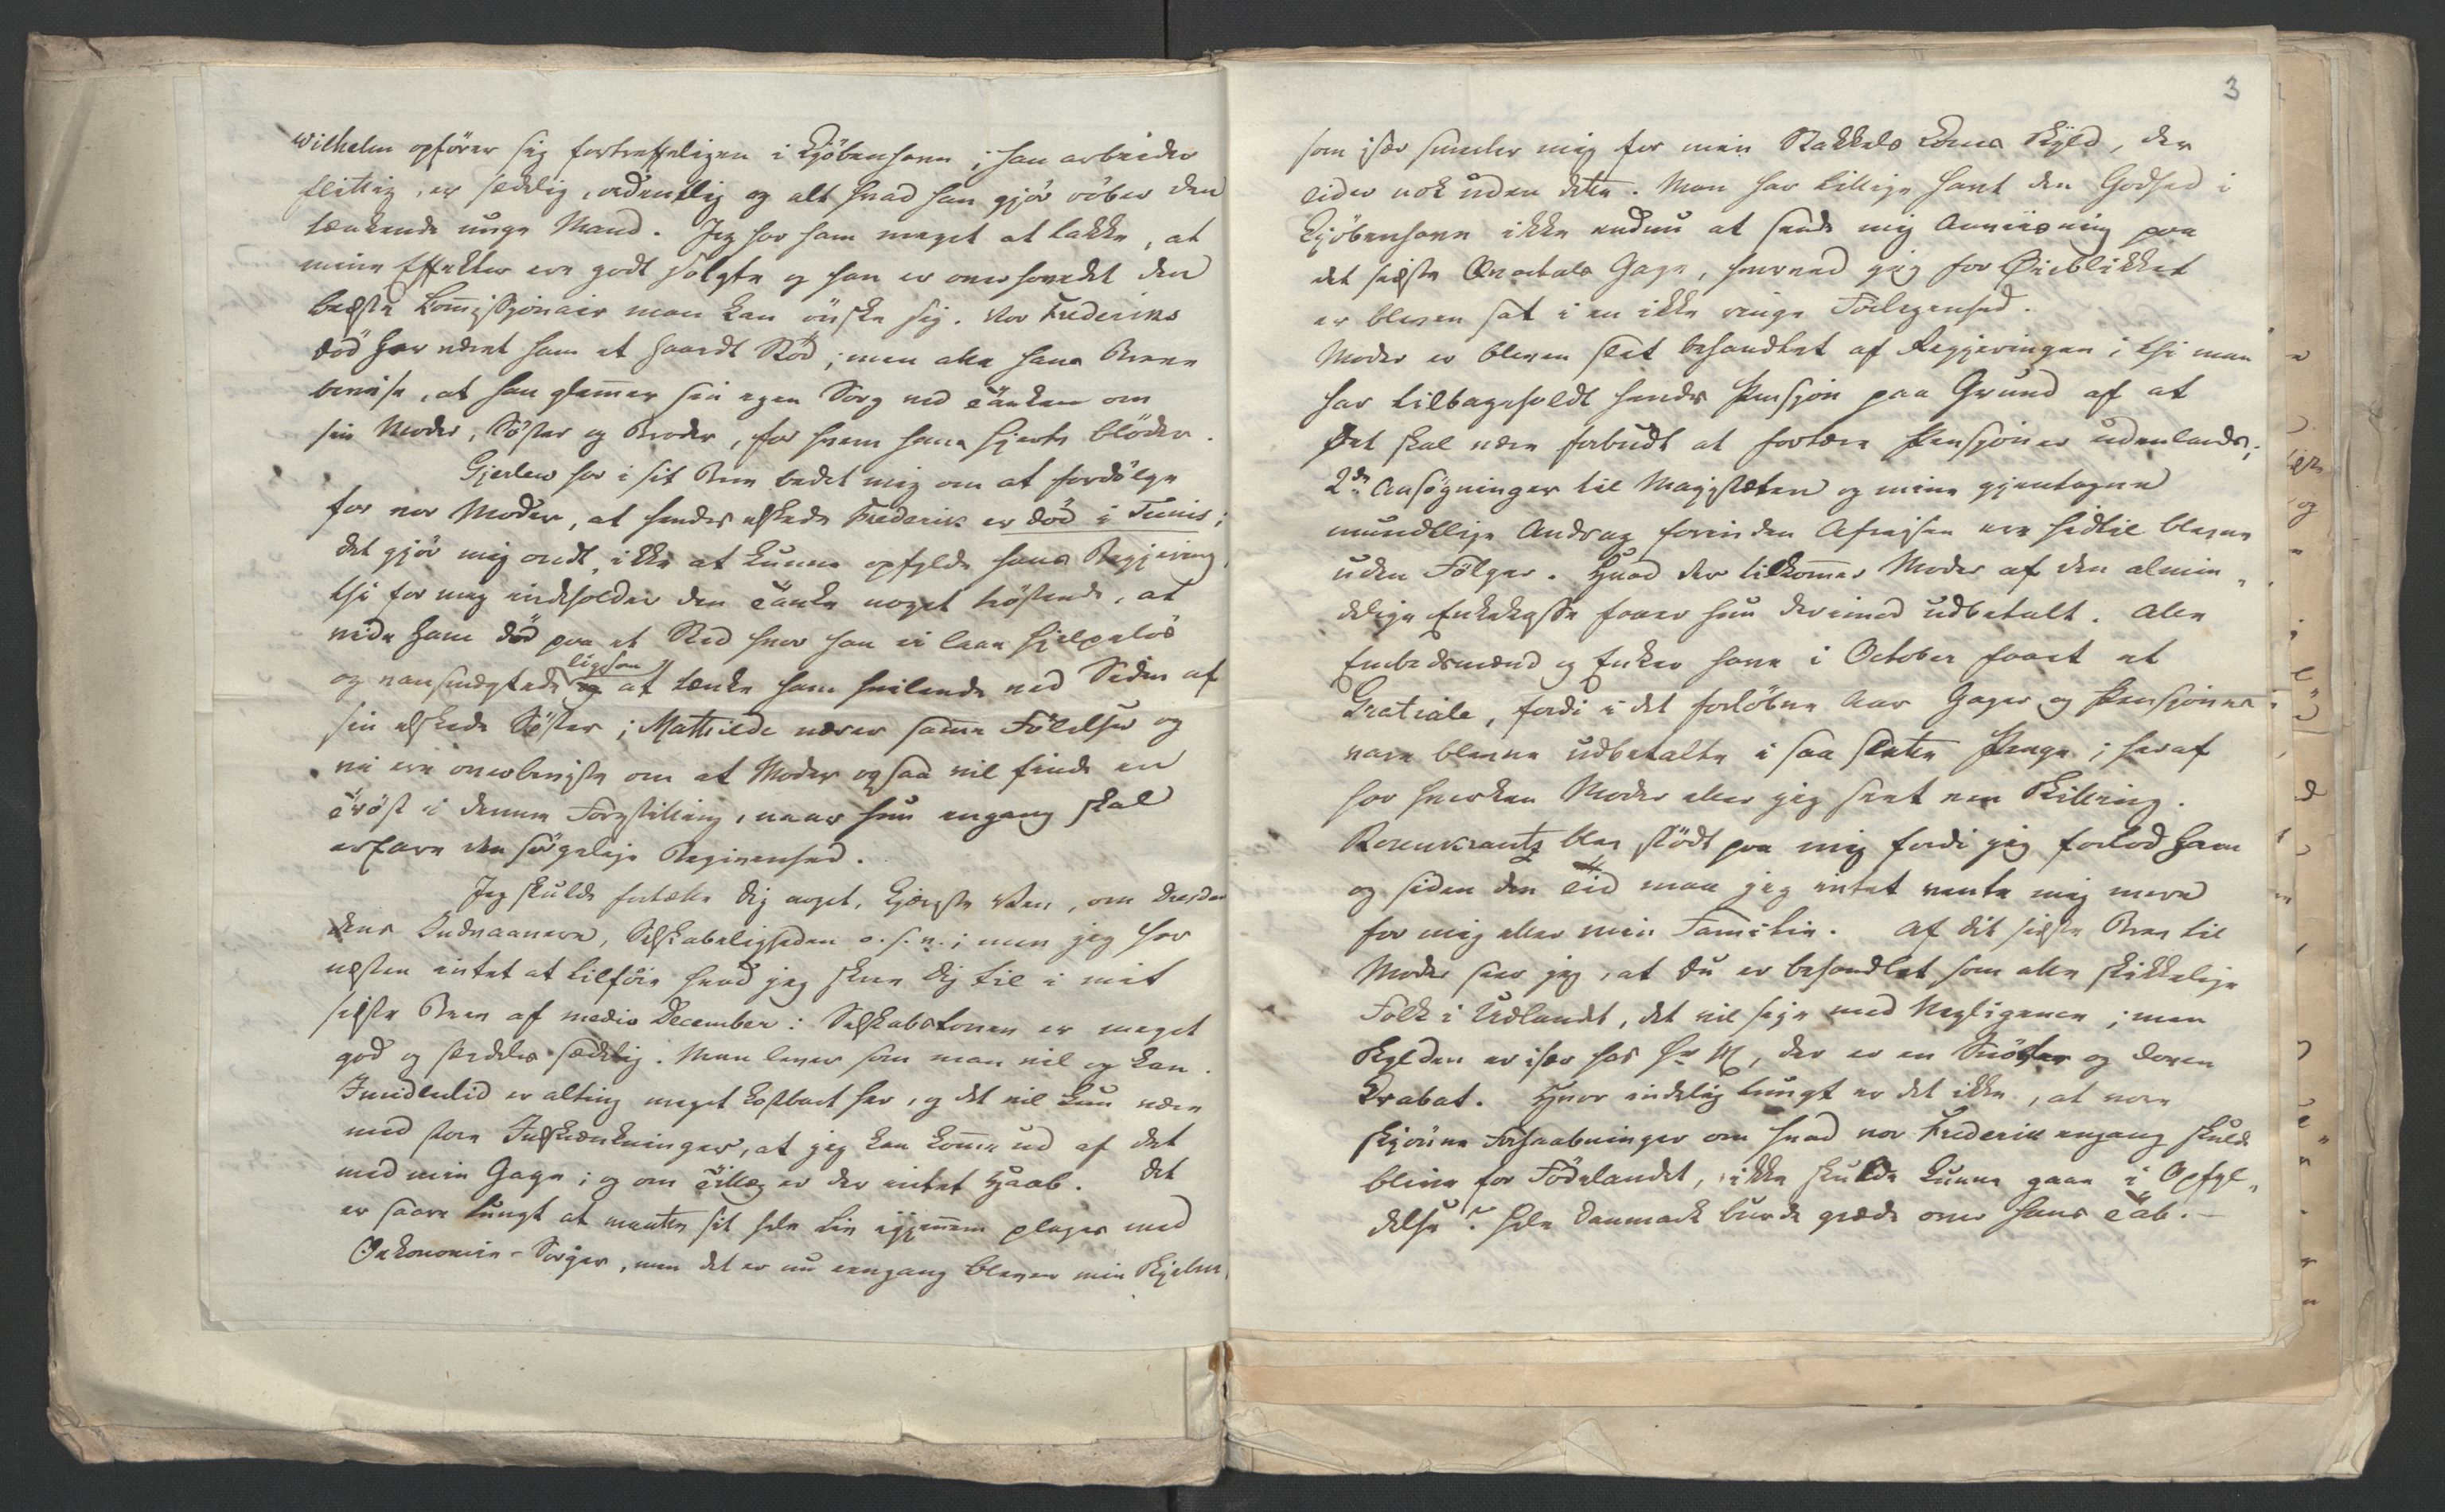 Wilhelm opförer sig fortreffeligen i Kjöbenhavn; han arbeider
flittig, er sædelig, ordentlig og alt hvad han gjör röber den
tænkende unge Mand. Jeg har ham meget at takke, at
mine Effekter ere godt solgte og han er overhovedet den
beste Commissjonair man kan önske sig. Vor Frederiks
död har været ham et haardt Stöd; men alle hans Breve
bevise, at han glemmer sin egen Sorg ved Tanken om
sin Moder, Söster og Broder, for hvem hans Hjerte blöder.
Gjerlew har i sit Brev bedet mig om at fordölge
for vor Moder, at hendes elskede Frederik er död i Tunis;
det gjör mig ondt, ikke at kunne opfylde hans Begjering,
thi for mig indeholder den Tanke noget tröstende, at
vide ham död paa et Sted hvor han ei laae hjelpelös
og vansmægtede ligesom at tænke ham hvilende ved Siden af
sin elskede Söster; Mathilde nærer samme Fölelser og
vi ere overbeviste om at Moder ogsaa vil finde en
Tröst i denne Forestilling, naar hun engang skal
erfare den sörgelige Begivenhed.
Jeg skulde fortælle dig noget, kjæreste Ven, om Dresden
dens Indvaanere, Selskabeligheden o. s. v.; men jeg har
næsten intet at tilföie hvad jeg skrev dig til i mit
sidste Brev af medio December: Selskabstonen er meget
god og særdeles sædelig. Man lever som man vil og kan.
Imidlertid er alting meget kostbart her, og det vil kun være
med store Indskrænkninger, at jeg kan komme ud af det
med min Gage; og om Tillæg er der intet Haab. Det
er saare tungt at maatte sit hele Liv igjennem plages med
Oekonomie-Sorger, men det er nu eengang bleven min Skjebne,
3
som især smerter mig for min Stakkels Kones Skyld, der
lider nok uden dette. Man har tillige havt den Godhed i
Kjöbenhavn ikke endnu at sende mig Anviisning paa
det sidste Qvartals Gage, hvorved jeg for Øieblikket
er bleven sat i en ikke ringe Forlegenhed.
Moder er bleven slet behandlet af Regjeringen; thi man
har tilbageholdt hendes Pensjon paa Grund af at
det skal være forbudt at fortære Pensjoner udenlands;
2de Ansögninger til Majestæten og mine gjentagne
mundtlige Andrag forinden Afreisen ere hidtil blevne
uden Fölger. Hvad der tilkommer Moder af den almin„
delige Enkekasse faaer hun derimod udbetalt. Alle
Embedsmænd og Enker have i October faaet et
Gratiale, fordi i det forlöbne Aar Gager og Pensjoner
vare blevne udbetalte i saa slette Penge; heraf
har hverken Moder eller jeg seet een Skilling.
Rosenkrantz blev stödt paa mig fordi jeg forlod ham
og siden den Tid maa jeg intet vente mig mere
for mig eller min Familie. Af dit sidste Brev til
Moder seer jeg, at du er behandlet som alle skikkelige
Folk i Udlandet, det vil sige med Negligence; men
Skylden er især hos Hr M, der er en og doven
Krabat. Hvor inderlig tungt er det ikke, at vore
skjönne Forhaabninger om hvad vor Frederik engang skulde
blive for Födelandet, ikke skulde kunne gaae i Opfyl„
delse? Hele Danmark burde græde over hans Tab. —